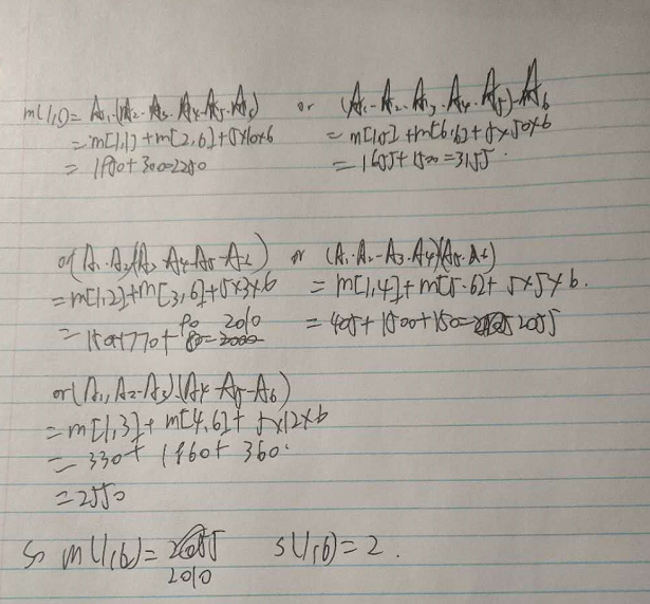 m(1,6) = A₁.(A₂.A₃.A₄.A₅.A₆) or (A₁.A₂.A₃.A₄.A₅).A₆
= m[1,1] + m[2,6] + 5×10×6 = m[1,5] + m[6,6] + 5×50×6
= 1950 + 300=2250 = 1655 + 1500 = 3155.
or (A₁.A₂)(A₃.A₄.A₅.A₆) or (A₁.A₂.A₃.A₄)(A₅.A₆)
= m[1,2] + m[3,6] + 5×3×6 = m[1,4] + m[5.6] + 5×5×6.
= 150+1770+ 90 2010 = 405 + 1500 + 150 = 2055
or (A₁,A₂-A₃).(A₄-A₅-A₆)
= m[1,3] + m[4,6] + 5×12×6
= 330 + 1860 + 360.
= 2550
So m(1,6) = 2010 S(1,6) = 2.